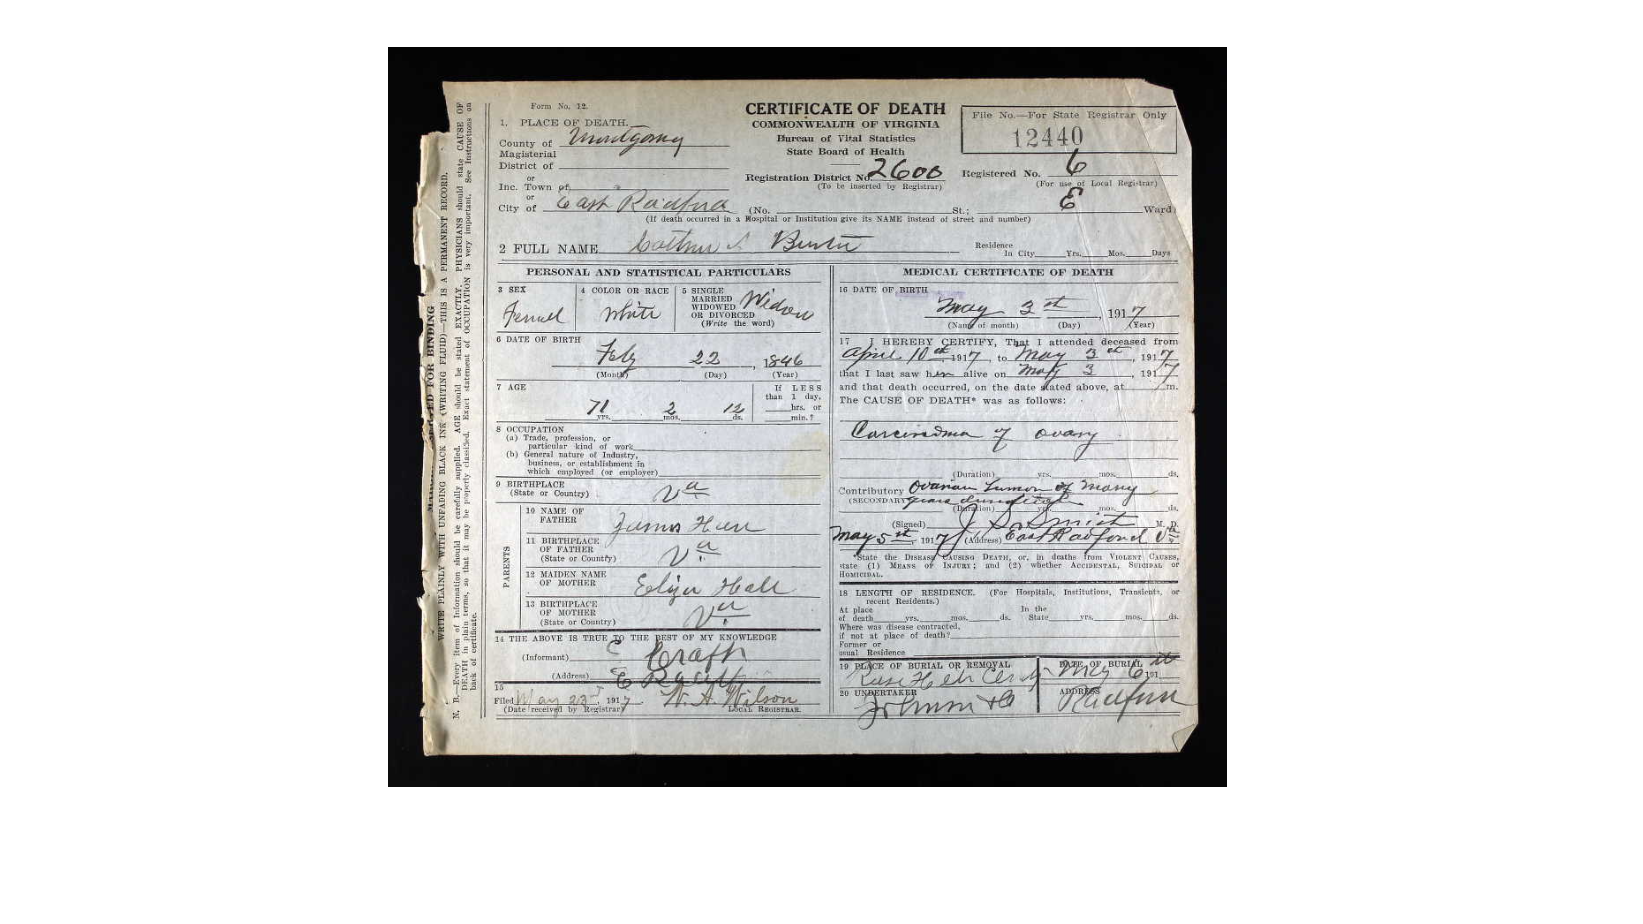 Form No. 12.
CERTIFICATE OF DEATH
COMMONWEALTH OF VIRGINIA
Bureau of Vital Statistics
State Board of Health
File No.—For State Registrar Only
12440
1. PLACE OF DEATH.
County of Montgomery
Magisterial
District of
or
Inc. Town of
or
City of East Radford
Registration District No. 2600
(To be inserted by Registrar)
Registered No. 6
(For use of Local Registrar)
(No. St.; E Ward)
(If death occurred in a Hospital or Institution give its NAME instead of street and number)
2 FULL NAME
Residence
In City Yrs. Mos. Days
PERSONAL AND STATISTICAL PARTICULARS
3 SEX
Femal
4 COLOR OR RACE
White
5 SINGLE
MARRIED
WIDOWED
OR DIVORCED
(Write the word)
Widow
6 DATE OF BIRTH
Feby 22, 1846
(Month) (Day) (Year)
7 AGE
71 yrs. 2 mos. 12 ds.
If LESS
than 1 day,
hrs. or
min.?
8 OCCUPATION
(a) Trade, profession, or
particular kind of work
(b) General nature of Industry,
business, or establishment in
which employed (or employer)
9 BIRTHPLACE
(State or Country)
Va
PARENTS
10 NAME OF
FATHER
James
11 BIRTHPLACE
OF FATHER
(State or Country)
Va.
12 MAIDEN NAME
OF MOTHER
Eliza Hall
13 BIRTHPLACE
OF MOTHER
(State or Country)
Va.
14 THE ABOVE IS TRUE TO THE BEST OF MY KNOWLEDGE
(Informant) C Craft
(Address) E
15
Filed May 23, 1917 W. A. Wilson
(Date received by Registrar) LOCAL REGISTRAR.
MEDICAL CERTIFICATE OF DEATH
16 DATE OF BIRTH
May 3rd, 1917
(Name of month) (Day) (Year)
17 I HEREBY CERTIFY, That I attended deceased from
April 10th 1917, to May 3rd, 1917
that I last saw her alive on May 3, 1917
and that death occurred, on the date stated above, at m.
The CAUSE OF DEATH* was as follows:
Carcinoma of ovary
(Duration) yrs. mos. ds.
Contributory Ovarian Tumor of many
(SECONDARY) years
(Duration) yrs. mos. ds.
(Signed) J. S. Smith M. D.
May 5th, 1917 (Address) East Radford Va.
*State the DISEASE CAUSING DEATH, or, in deaths from VIOLENT CAUSES,
state (1) MEANS OF INJURY; and (2) whether ACCIDENTAL, SUICIDAL or
HOMICIDAL.
18 LENGTH OF RESIDENCE. (For Hospitals, Institutions, Transients, or
recent Residents.)
At place
of death yrs. mos. ds.
In the
State yrs. mos. ds.
Where was disease contracted,
if not at place of death?
Former or
usual Residence
19 PLACE OF BURIAL OR REMOVAL
DATE OF BURIAL
May 6th 191
20 UNDERTAKER
Johnson & Co
ADDRESS
Radford
WRITE PLAINLY WITH UNFADING BLACK INK (WRITING FLUID)—THIS IS A PERMANENT RECORD.
N. B.—Every item of Information should be carefully supplied. AGE should be stated EXACTLY. PHYSICIANS should state CAUSE OF
DEATH in plain terms, so that it may be properly classified. Exact statement of OCCUPATION is very important. See Instructions on
back of certificate.
FOR BINDING